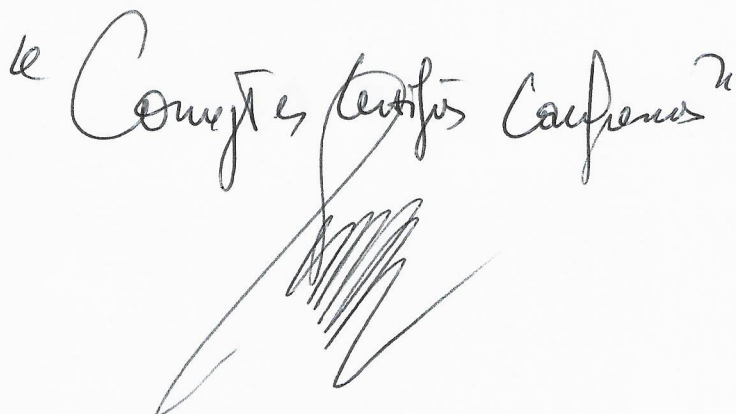 "Comptes certifiés conformes"